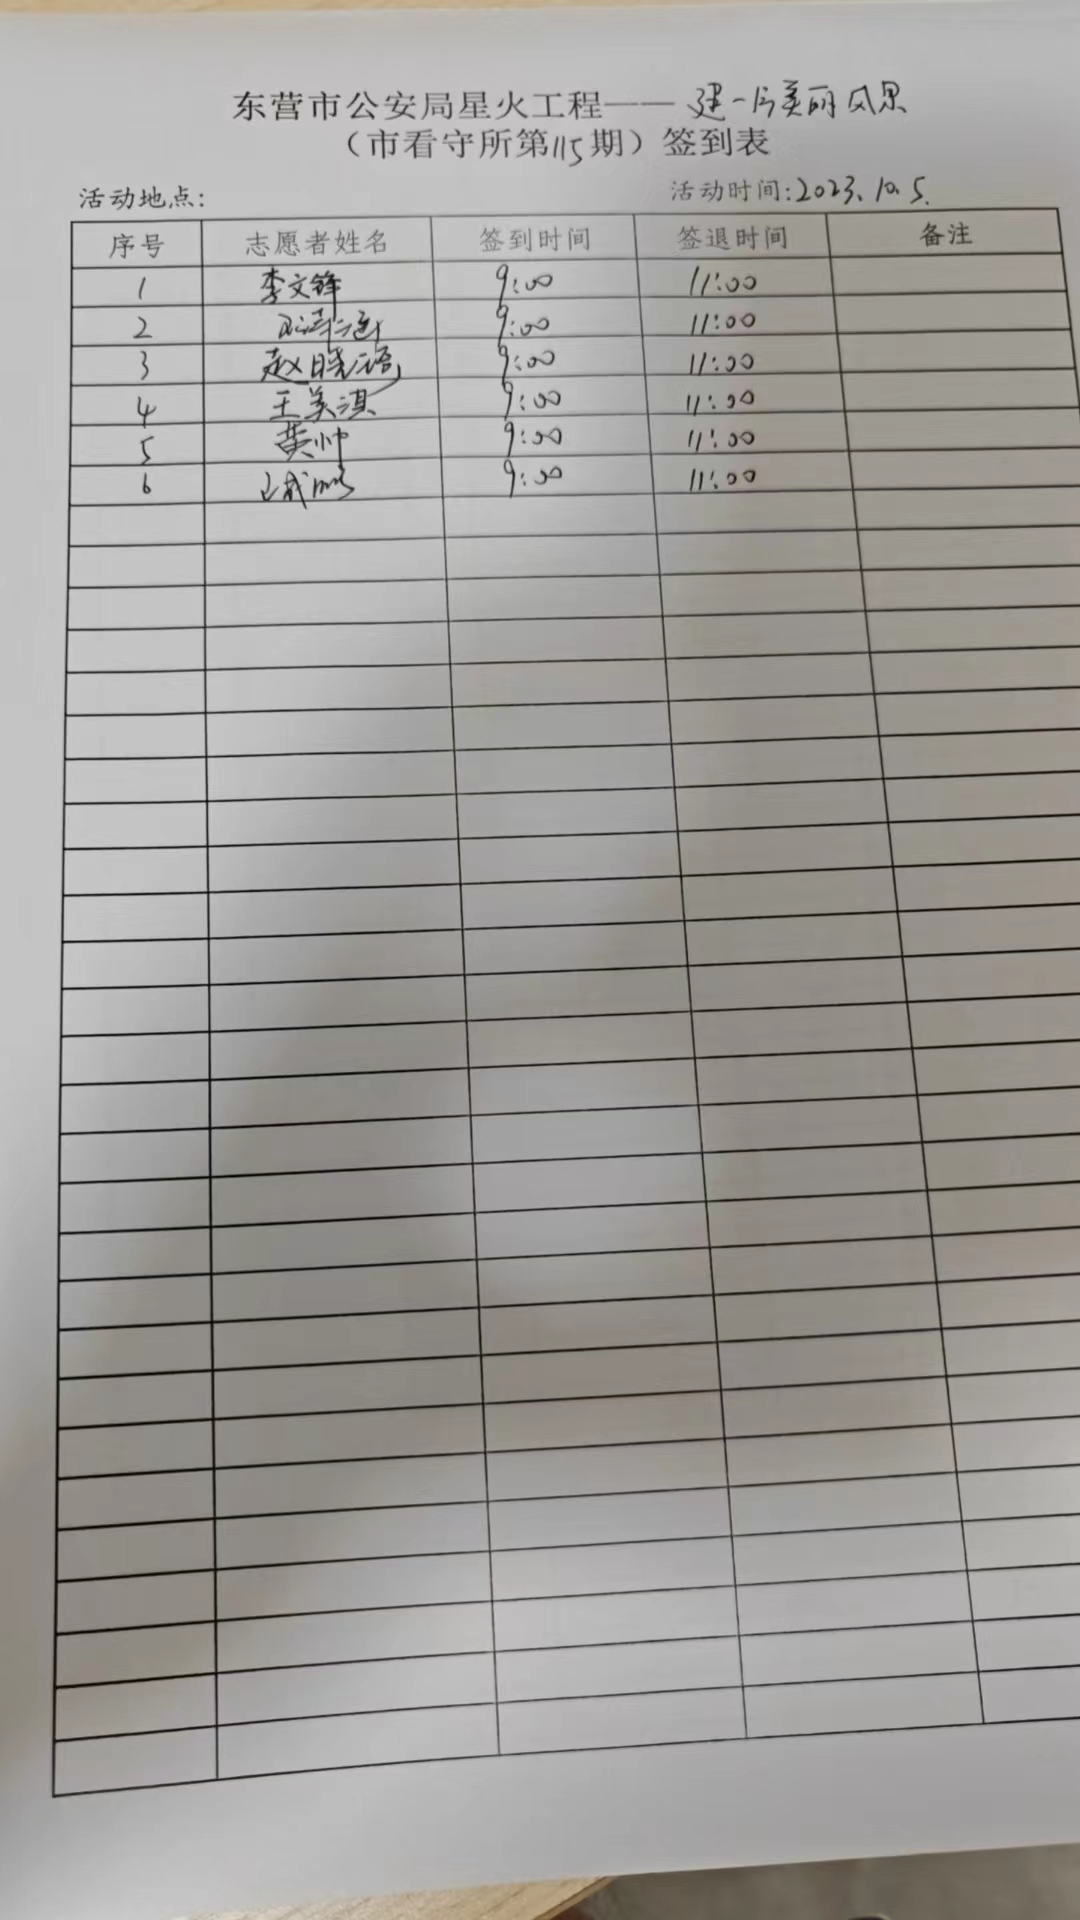 东营市公安局星火工程——建一片美丽风景
（市看守所第115期）签到表
活动地点: 活动时间:2023.10.5.
序号 志愿者姓名 签到时间 签退时间 备注
1 李文锋 9:00 11:00
2 9:00 11:00
3 赵晓语 9:00 11:00
4 王美淇 9:00 11:00
5 黄帅 9:00 11:00
6 9:00 11:00